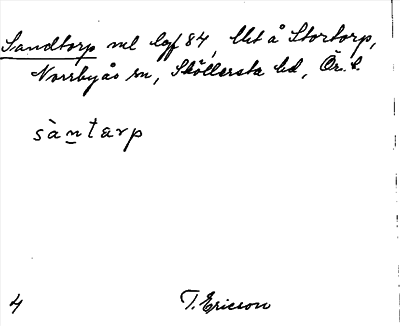 Sandtorp nel lgf 84, Ulet å Stortorp,
Norrbyås sn, Sköllersta hd, Ör. l.
sàntarp
4 T. Ericson